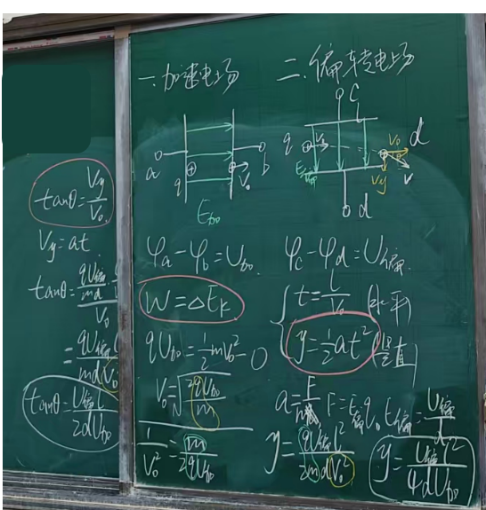 tanθ = Vy/V₀
Vy = at
tanθ = (qU偏/md · l/V₀)/V₀
= qU偏l/mdV₀²
tanθ = U偏l/2dU加
一.加速电场
a
q
V₀
b
E加
φa-φb=U加.
W=ΔEk
qU加=½mV₀²-0
V₀=√(2qU加/m)
1/V₀²=m/2qU加
二.偏转电场
C
q
V₀
V₀
d
E偏
Vy
V
d
φc-φd=U偏.
t=l/V₀ (水平)
y=½at² (竖直)
a=F/m F=E偏q, E偏=U偏/d
y=qU偏l²/2mdV₀²
y=U偏l²/4dU加